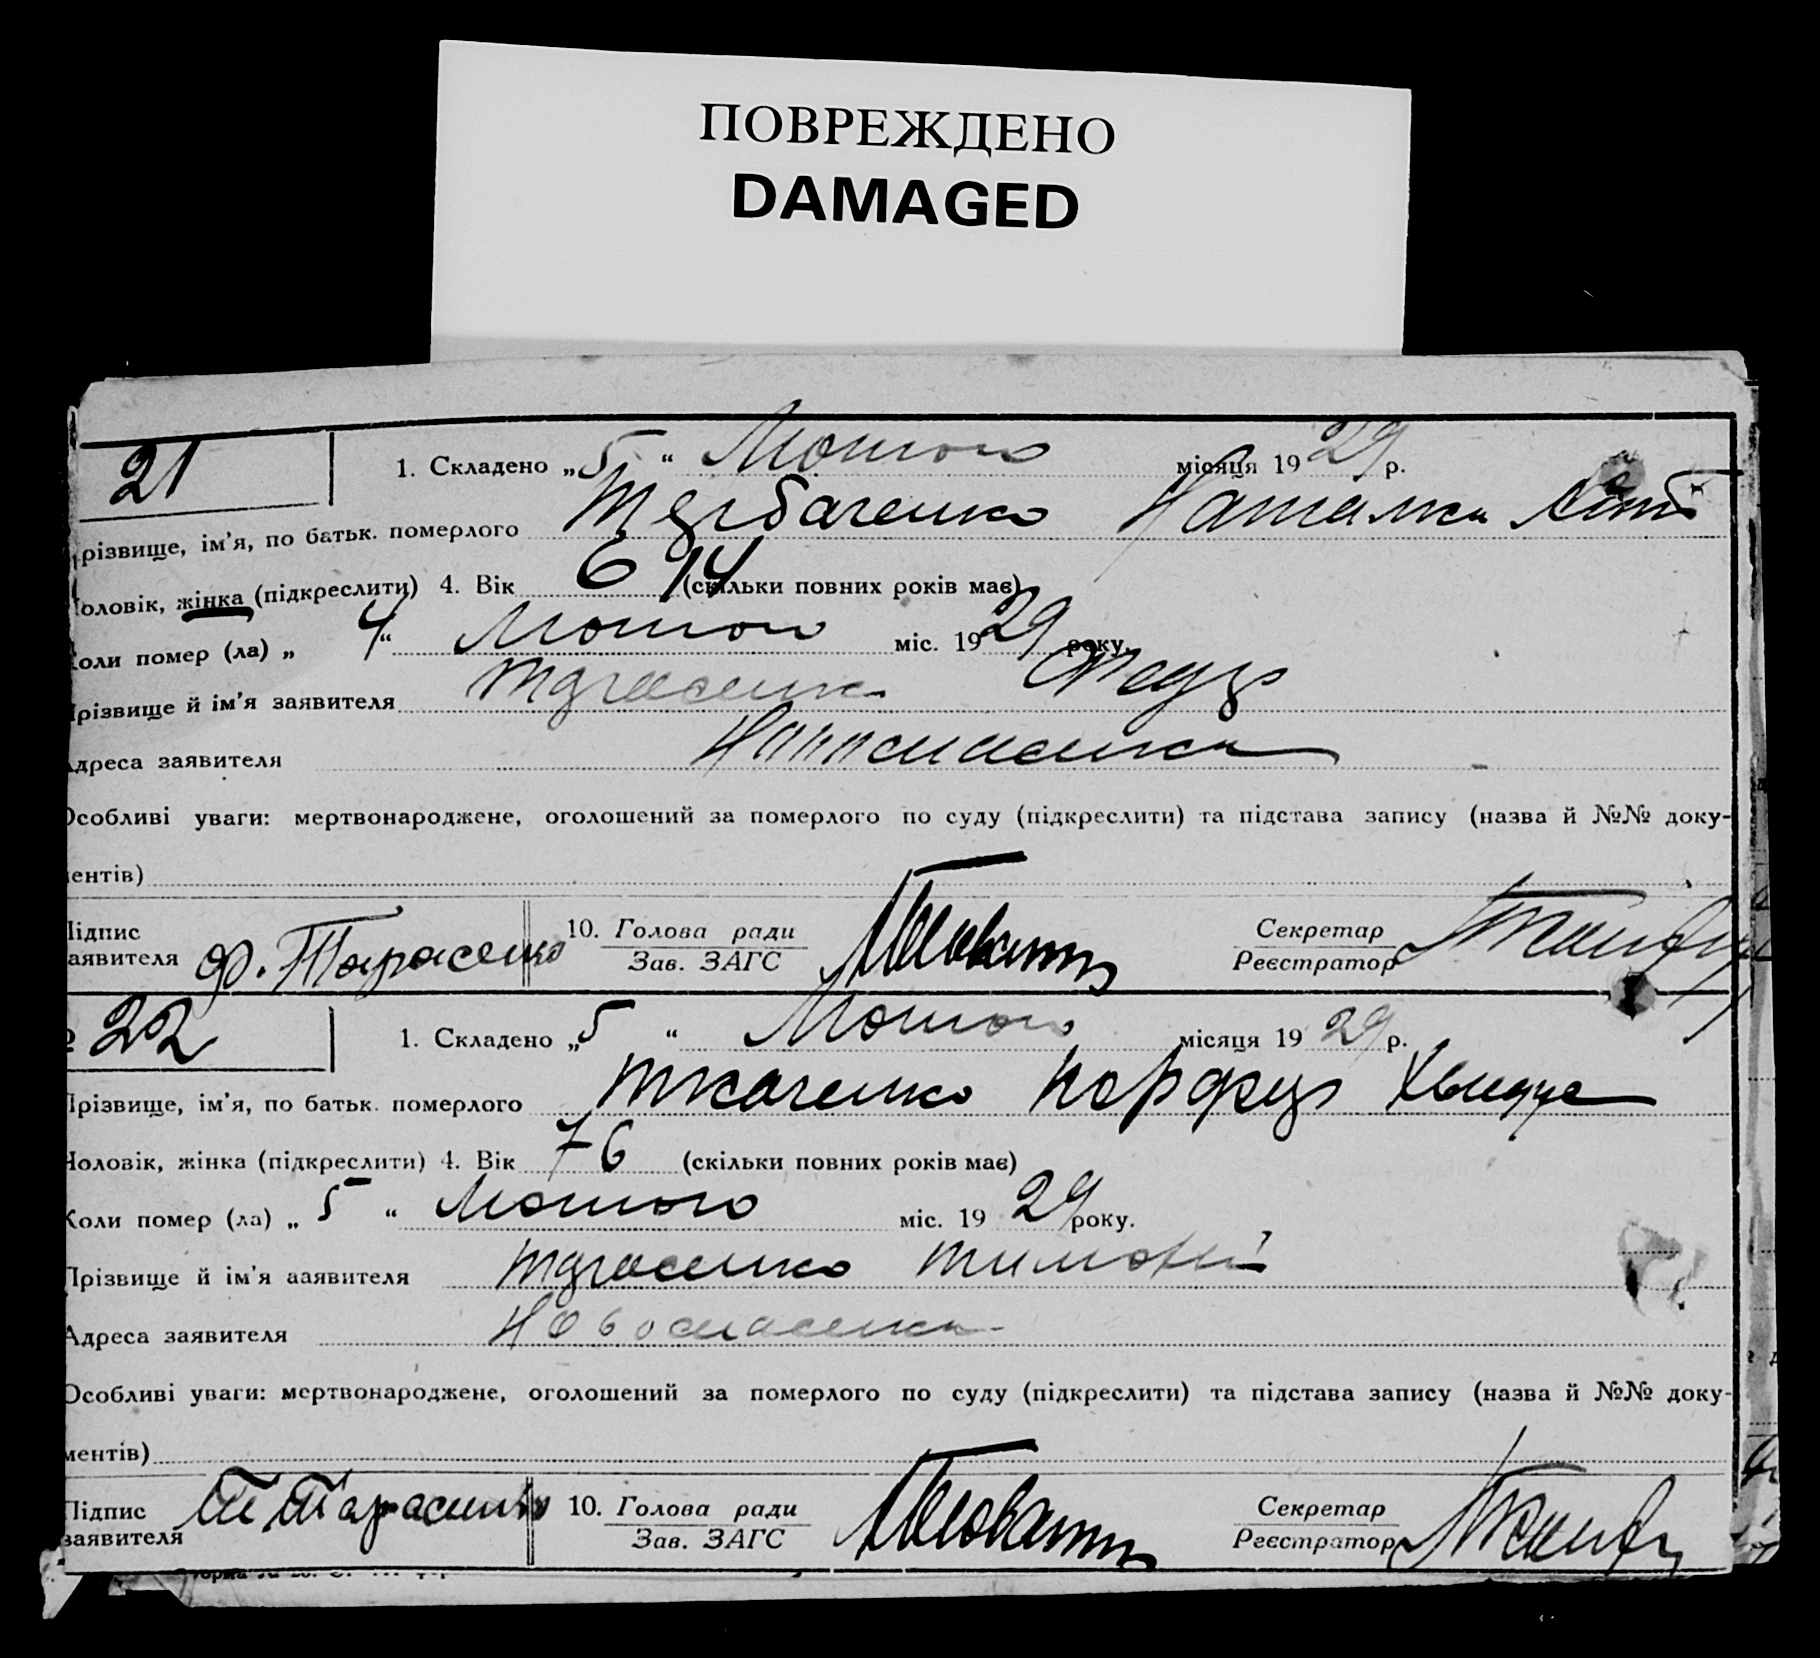 ПОВРЕЖДЕНО
DAMAGED
21
1. Складено „ 5 “ Лютого місяця 19 29 р.
різвище, ім'я, по батьк. померлого Щербаченко Наталка
оловік, жінка (підкреслити) 4. Вік (скільки повних років має)
оли помер (ла) „ 4 “ Лютого міс. 19 29 року.
різвище й ім'я заявителя Тарасенко
дреса заявителя Новоспасенка
Особливі уваги: мертвонароджене, оголошений за померлого по суду (підкреслити) та підстава запису (назва й №№ доку-
ентів)
Підпис заявителя Ф. Тарасенко 10. Голова ради Зав. ЗАГС Секретар Реєстратор
22
1. Складено „ 5 “ Лютого місяця 19 29 р.
Прізвище, ім'я, по батьк. померлого Ткаченко
Чоловік, жінка (підкреслити) 4. Вік 76 (скільки повних років має)
Коли помер (ла) „ 5 “ Лютого міс. 19 29 року.
Прізвище й ім'я заявителя Тарасенко Тимофій
Адреса заявителя Новоспасенка
Особливі уваги: мертвонароджене, оголошений за померлого по суду (підкреслити) та підстава запису (назва й №№ доку-
ментів)
Підпис заявителя Т Тарасенко 10. Голова ради Зав. ЗАГС Секретар Реєстратор